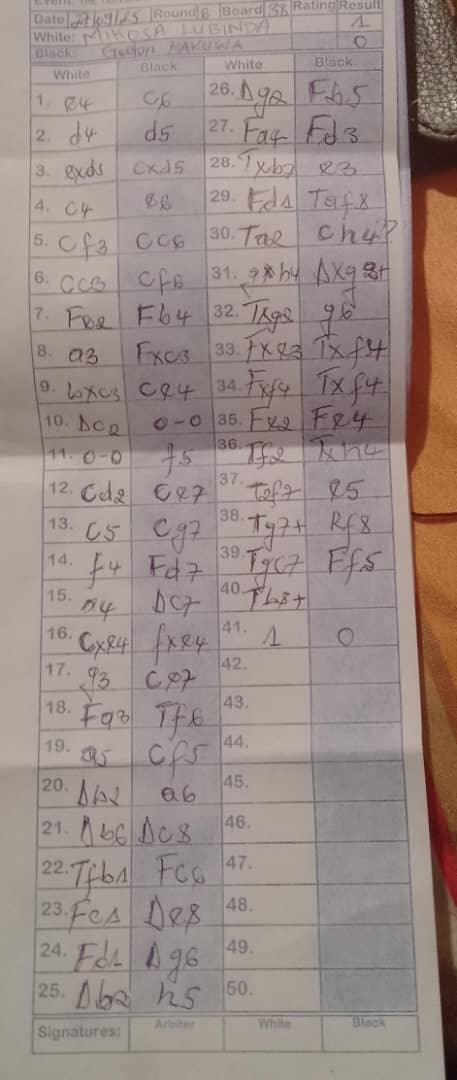 Date 27/09/25 Round 8 Board 38 Rating Result
White: MIKOSA LUBINDA 1
Black: HAKUWA 0
White Black White Black
1. e4 c6 26. Dg2 Fb5
2. d4 d5 27. Fa4 Fd3
3. exd5 cxd5 28. Txb7 e3
4. c4 e6 29. Fd1 Taf8
5. Cf3 Cc6 30. Ta2 Ch4?
6. Cc3 Cf6 31. gxh4 Dxg2+
7. Fe2 Fb4 32. Txg2 g6
8. a3 Fxc3 33. Fxe3 Txf4
9. bxc3 Ce4 34. Fxf4 Txf4
10. Dc2 0-0 35. Fe2 Fe4
11. 0-0 f5 36. Tf2 Txh4
12. Cd2 Ce7 37. Tff7 e5
13. c5 Cg7 38. Tg7+ Rf8
14. f4 Fd7 39. Tgc7 Ff5
15. a4 Dc7 40. Tb8+
16. Cxe4 fxe4 41. 1 0
17. g3 Ce7 42.
18. Fa3 Tf6 43.
19. a5 Cf5 44.
20. Db2 a6 45.
21. Db6 Dc8 46.
22. Tfb1 Fc6 47.
23. Fc1 De8 48.
24. Fd1 Dg6 49.
25. Db2 h5 50.
Signatures: Arbiter White Black